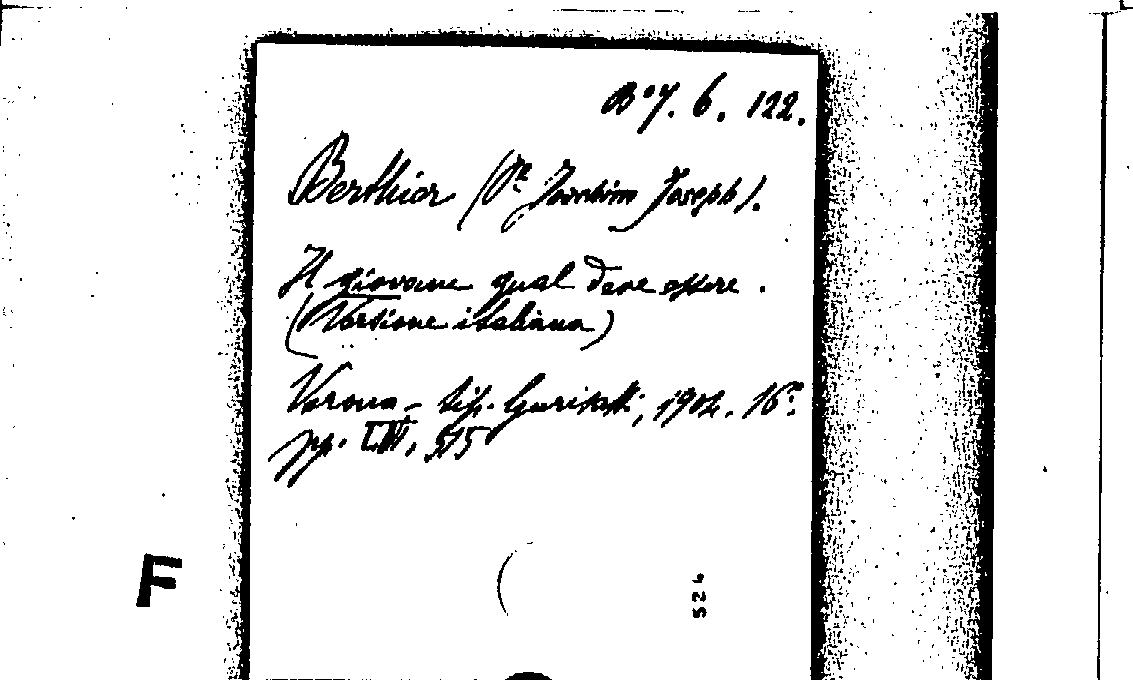 B° 7. 6. 122.
Berthier (Pe Joachim Joseph).
Il giovane qual deve essere.
(Versione italiana)
Verona - tip. Gurisatti, 1902. 16°.
pp. LVI, 515
F
524